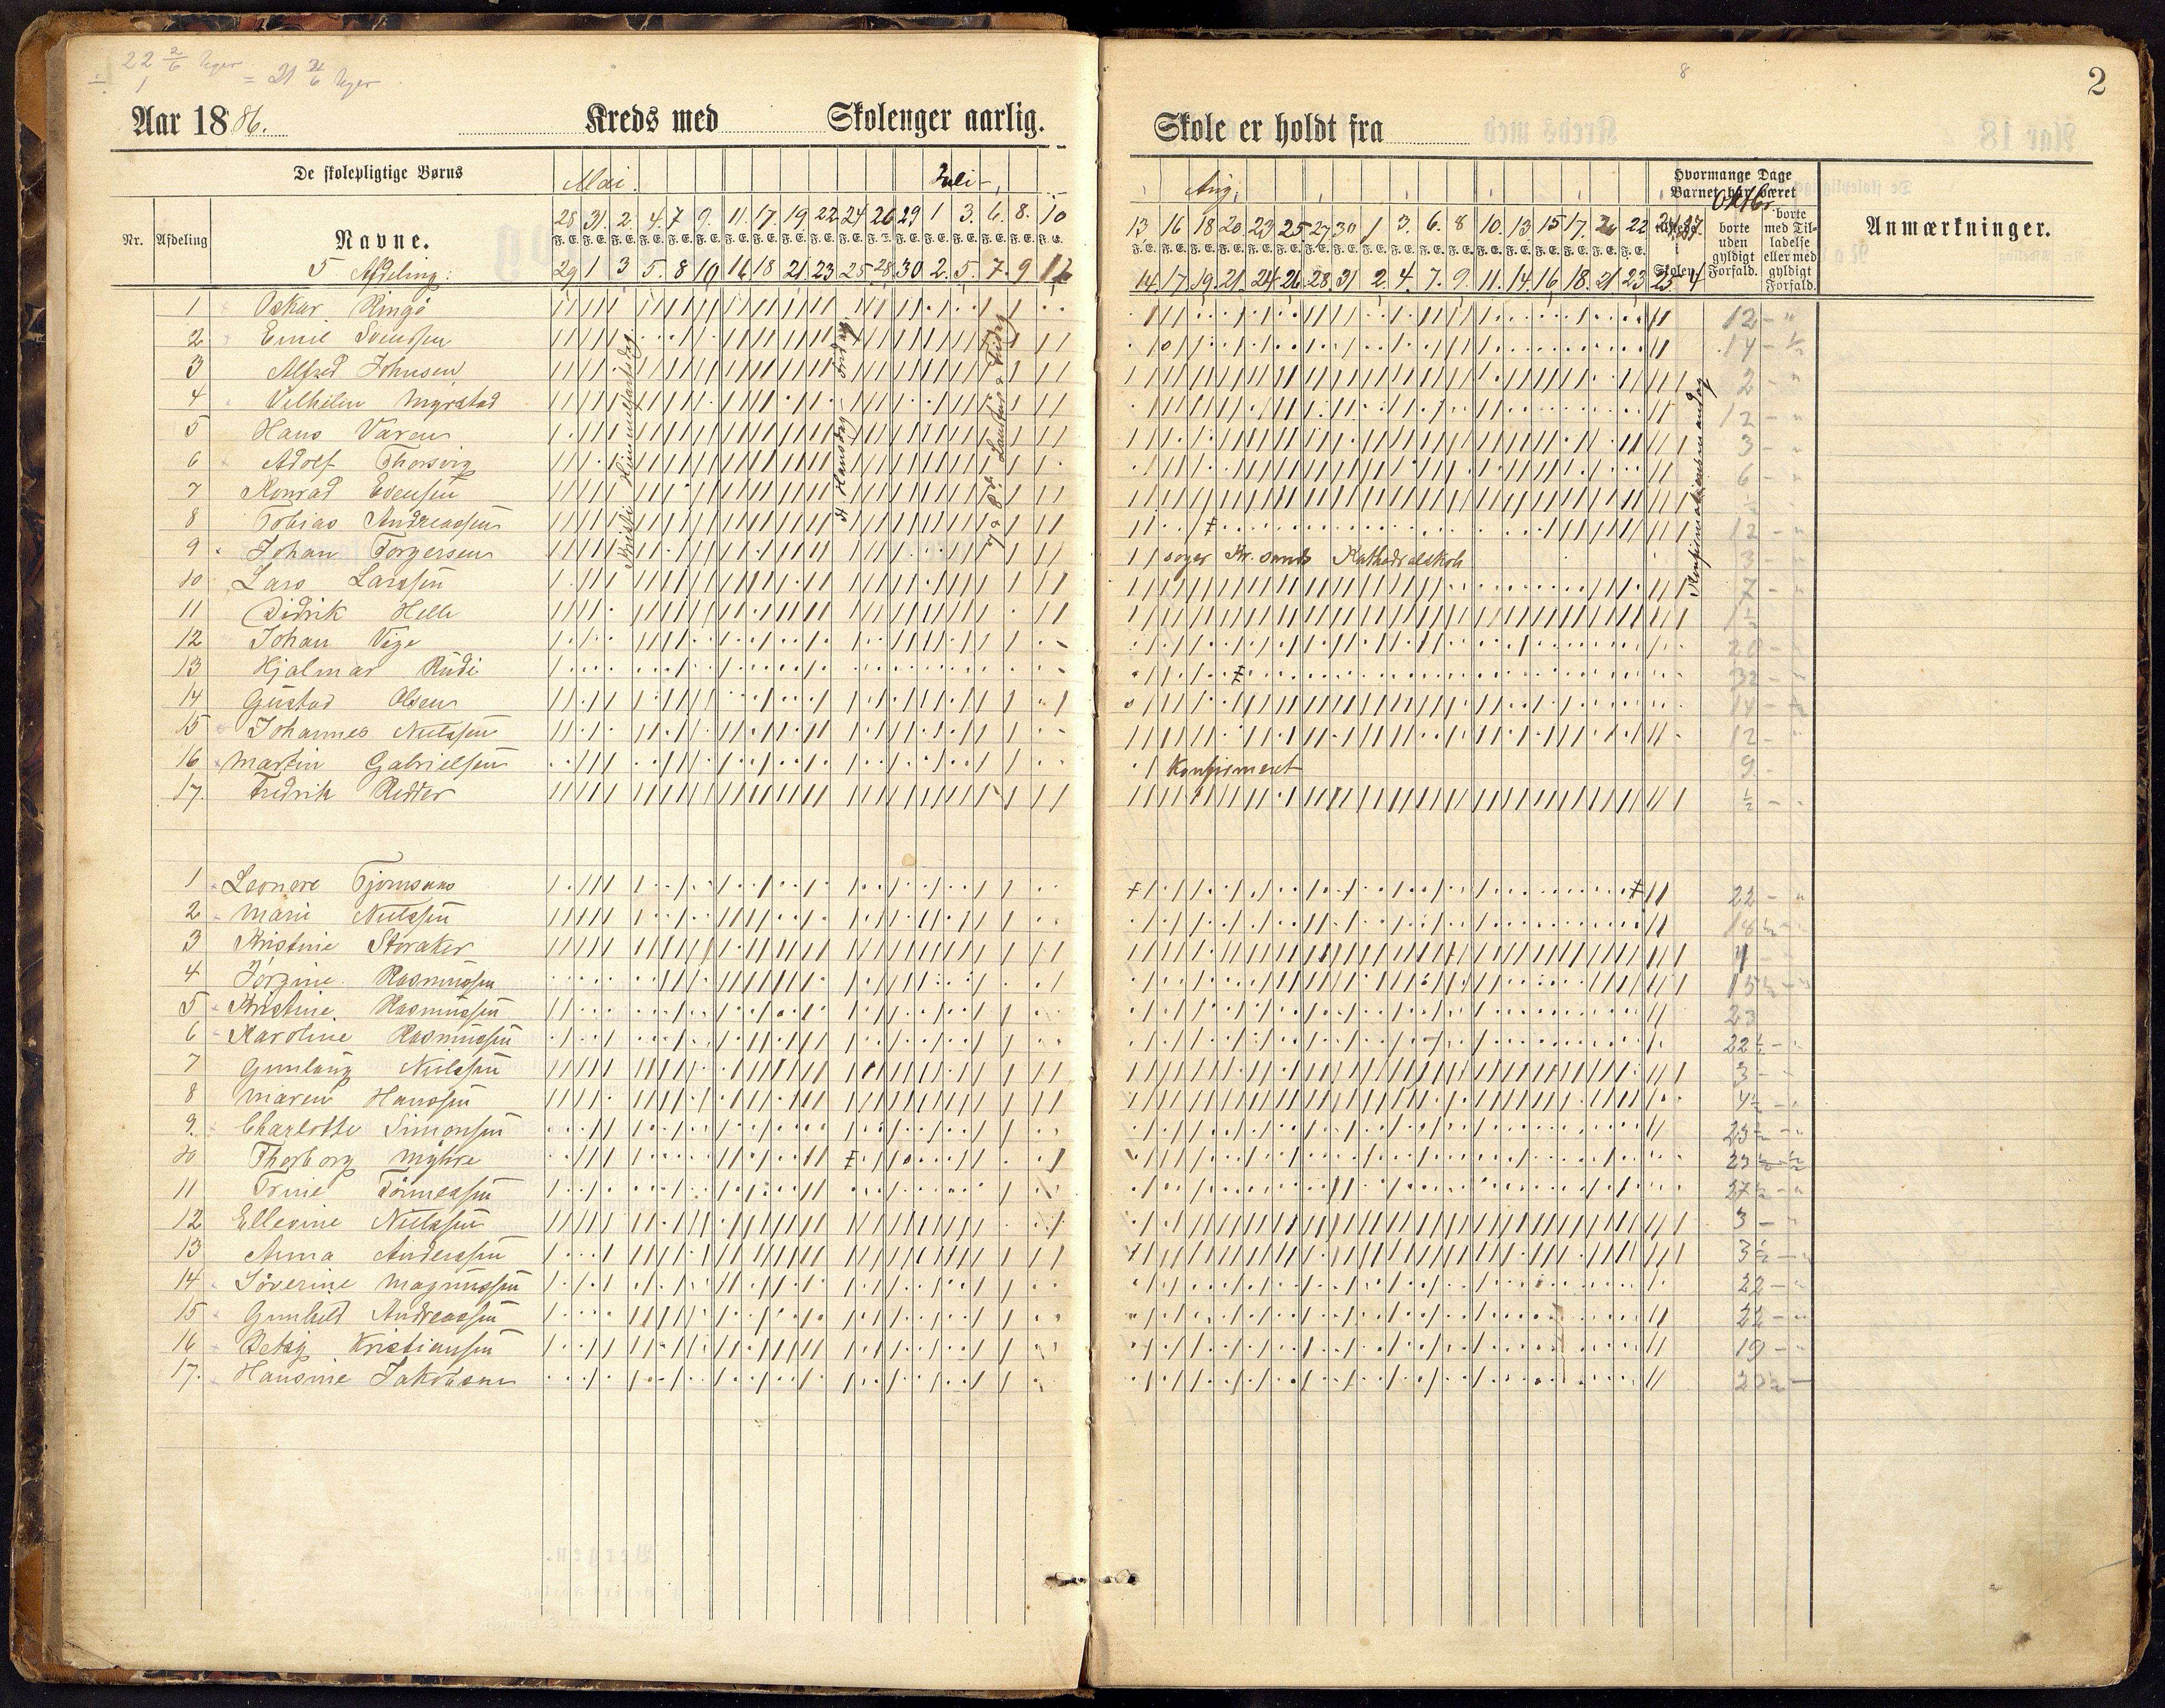 22 2/6 Uger
÷ 1 = 21 2/6 Uger
8
2
Aar 1886. Kreds med Skoleuger aarlig. Skole er holdt fra
De skolepligtige Børns
Mai. Juli
Aug. Oktbr.
Hvormange Dage Barnet har været
Nr. Afdeling Navne.
5 Afdeling:
28 31 2 4 7 9 11 17 19 22 24 26 29 1 3 6 8 10
F. E. F. E. F. E. F. E. F. E. F. E. F. E. F. E. F. E. F. E. F. E. F. E. F. E. F. E. F. E. F. E. F. E. F. E.
29 1 3 5 8 10 16 18 21 23 25 28 30 2 5 7 9 12
13 16 18 20 23 25 27 30 1 3 6 8 10 13 15 17 20 22 24 27
F. E. F. E. F. E. F. E. F. E. F. E. F. E. F. E. F. E. F. E. F. E. F. E. F. E. F. E. F. E. F. E. F. E. F. E.
14 17 19 21 24 26 28 31 2 4 7 9 11 14 16 18 21 23 25 4
tilstede i Skolen.
borte uden gyldigt Forfald.
borte med Tilladelse eller med gyldigt Forfald.
Anmærkninger.
Kristi Himmelfartsdag
St Hansdag fridag
Konfirmationsmandag
1 Oskar Ringø 12 - "
2 Emil Svendsen 14 - 1/2
3 Alfred Johnsen 2 - "
4 Vilhelm Myrstad 12 - "
5 Hans Varen 3 - "
6 Adolf Thorsvig 6 - "
7 Konrad Evensen 1/2
8 Tobias Andreassen 12 - "
9 Johan Torgersen søger Kr.sands Kathedralskole 3 - "
10 Lars Larssen 7 - "
11 Didrik Helle 1 1/2
12 Johan Vige 20 - "
13 Hjalmar Rudi 32 - "
14 Gustav Olsen 14 -
15 Johannes Nielssen 12 - "
16 Martin Gabrielsen Konfirmeret 9
17. Fredrik Redder 1/2 - "
1 Leonore Tjomsaas 22 - "
2 Marie Nielssen 18 1/2 - "
3 Kristine Storaker 1
4 Jørgine Rasmussen 15 1/2 - "
5 Kristine Rasmussen 23
6 Karoline Rasmussen 22 1/2 - "
7 Gunlaug Nielssen 3 - "
8 Maren Hanssen 4 1/2 - "
9. Charlotte Simonsen 23 1/2 - "
10 Thorborg Myhre 23 1/2 - 1/2
11 Trine Tønnessen 27 1/2 - "
12 Ellevine Nielssen 3 - "
13 Anna Anderssen 3 1/2 - "
14 Søverine Magnussen 22 - "
15 Gunhild Andreassen 22 - "
16 Betsy Kristiansen 19 - "
17. Hansine Jakobsen 22 1/2 -